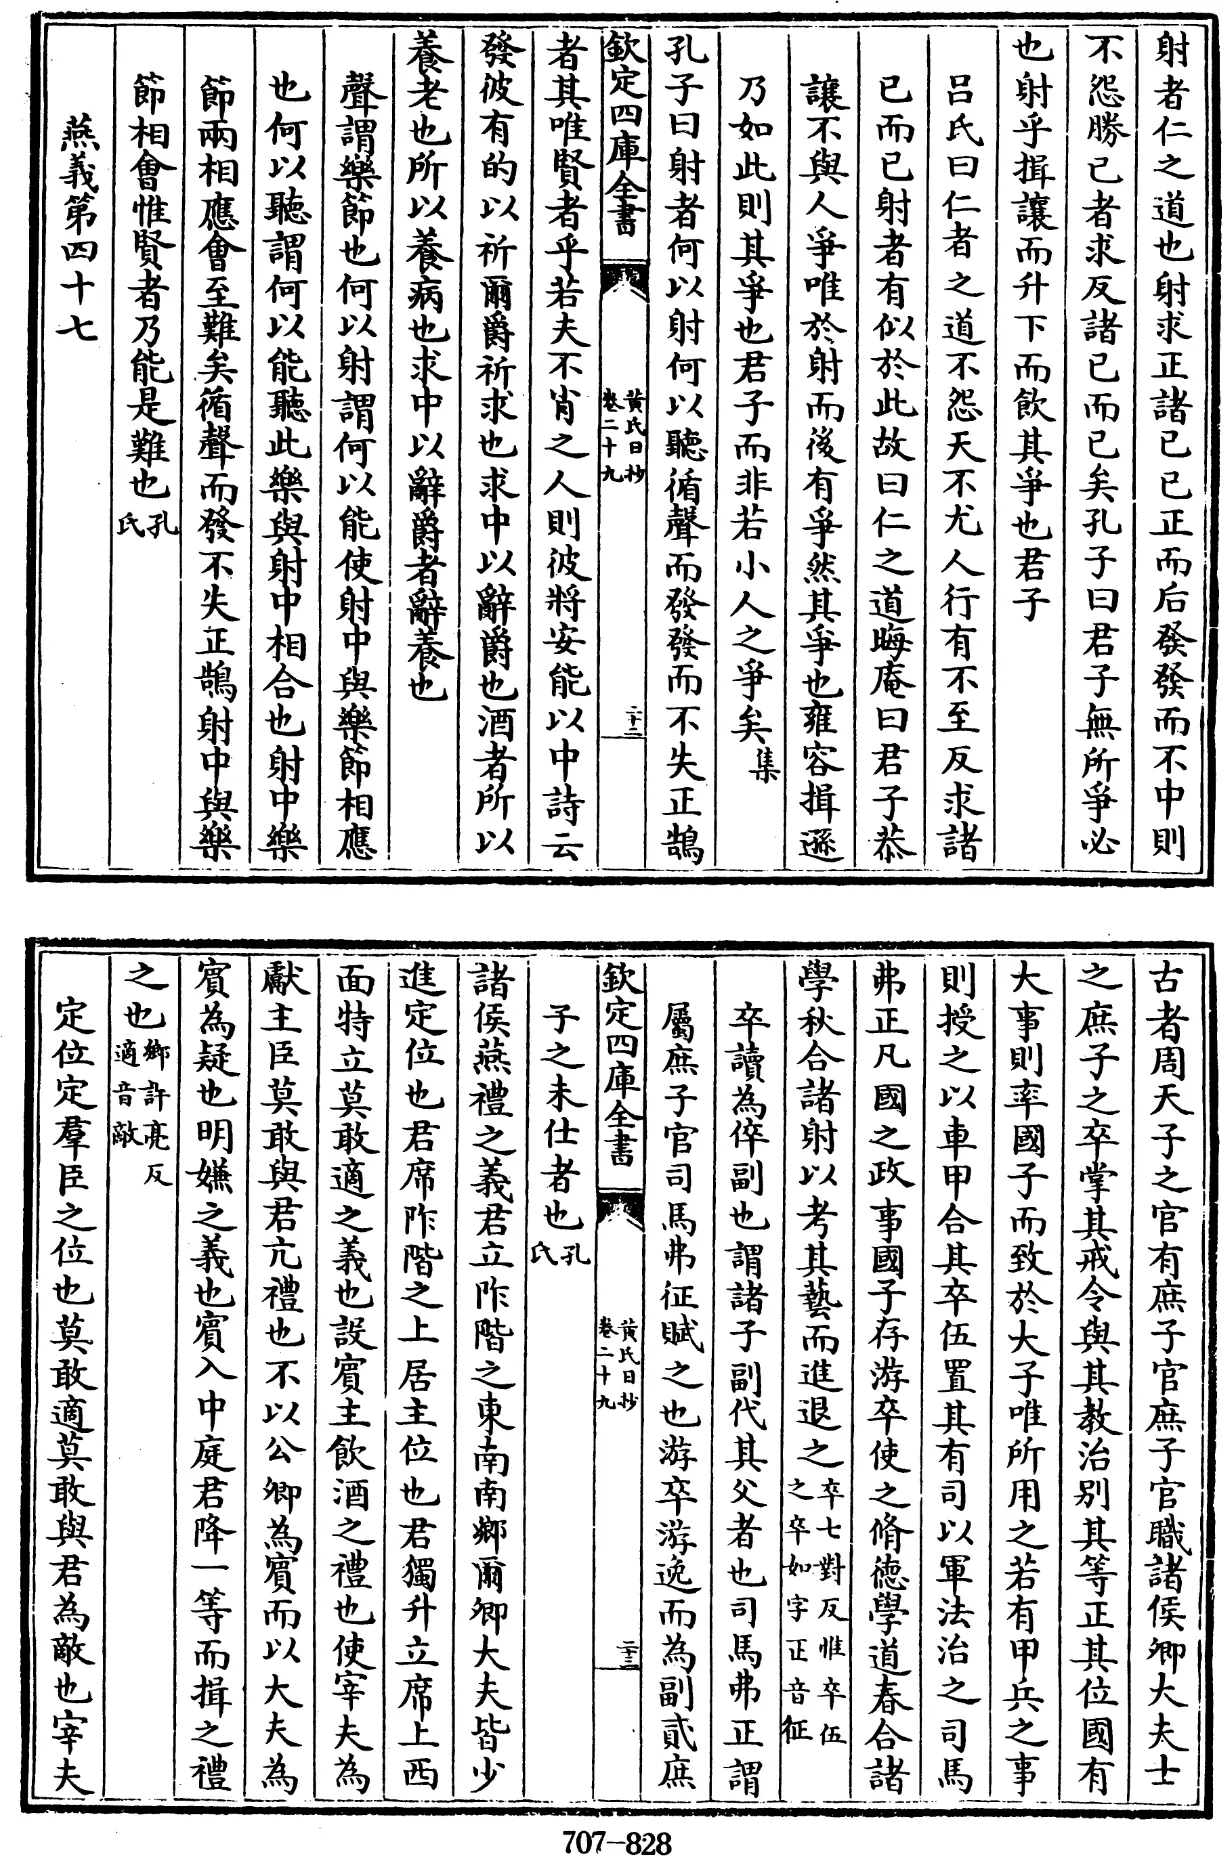 射者仁之道也射求正諸己己正而后發發而不中則
不怨勝己者求反諸己而已矣孔子曰君子無所爭必
也射乎揖讓而升下而飲其爭也君子
呂氏曰仁者之道不怨天不尤人行有不至反求諸
己而已射者有似於此故曰仁之道晦庵曰君子恭
讓不與人爭唯於射而後有爭然其爭也雍容揖遜
乃如此則其爭也君子而非若小人之爭矣集
孔子曰射者何以射何以聽循聲而發發而不失正鵠
欽定四庫全書
黃氏日抄
卷二十九
二十二
者其唯賢者乎若夫不肖之人則彼將安能以中詩云
發彼有的以祈爾爵祈求也求中以辭爵也酒者所以
養老也所以養病也求中以辭爵者辭養也
聲謂樂節也何以射謂何以能使射中與樂節相應
也何以聽謂何以能聽此樂與射中相合也射中樂
節兩相應會至難矣循聲而發不失正鵠射中與樂
節相會惟賢者乃能是難也孔
氏
燕義第四十七
古者周天子之官有庶子官庶子官職諸侯卿大夫士
之庶子之卒掌其戒令與其教治別其等正其位國有
大事則率國子而致於大子唯所用之若有甲兵之事
則授之以車甲合其卒伍置其有司以軍法治之司馬
弗正凡國之政事國子存游卒使之脩德學道春合諸
學秋合諸射以考其藝而進退之卒七對反惟卒伍
之卒如字正音征
卒讀為倅副也謂諸子副代其父者也司馬弗正謂
屬庶子官司馬弗征賦之也游卒游逸而為副貳庶
欽定四庫全書
黃氏日抄
卷二十九
二十三
子之未仕者也孔
氏
諸侯燕禮之義君立阼階之東南南鄉爾卿大夫皆少
進定位也君席阼階之上居主位也君獨升立席上西
面特立莫敢適之義也設賓主飲酒之禮也使宰夫為
獻主臣莫敢與君亢禮也不以公卿為賓而以大夫為
賓為疑也明嫌之義也賓入中庭君降一等而揖之禮
之也鄉許亮反
適音敵
定位定羣臣之位也莫敢適莫敢與君為敵也宰夫
707-828